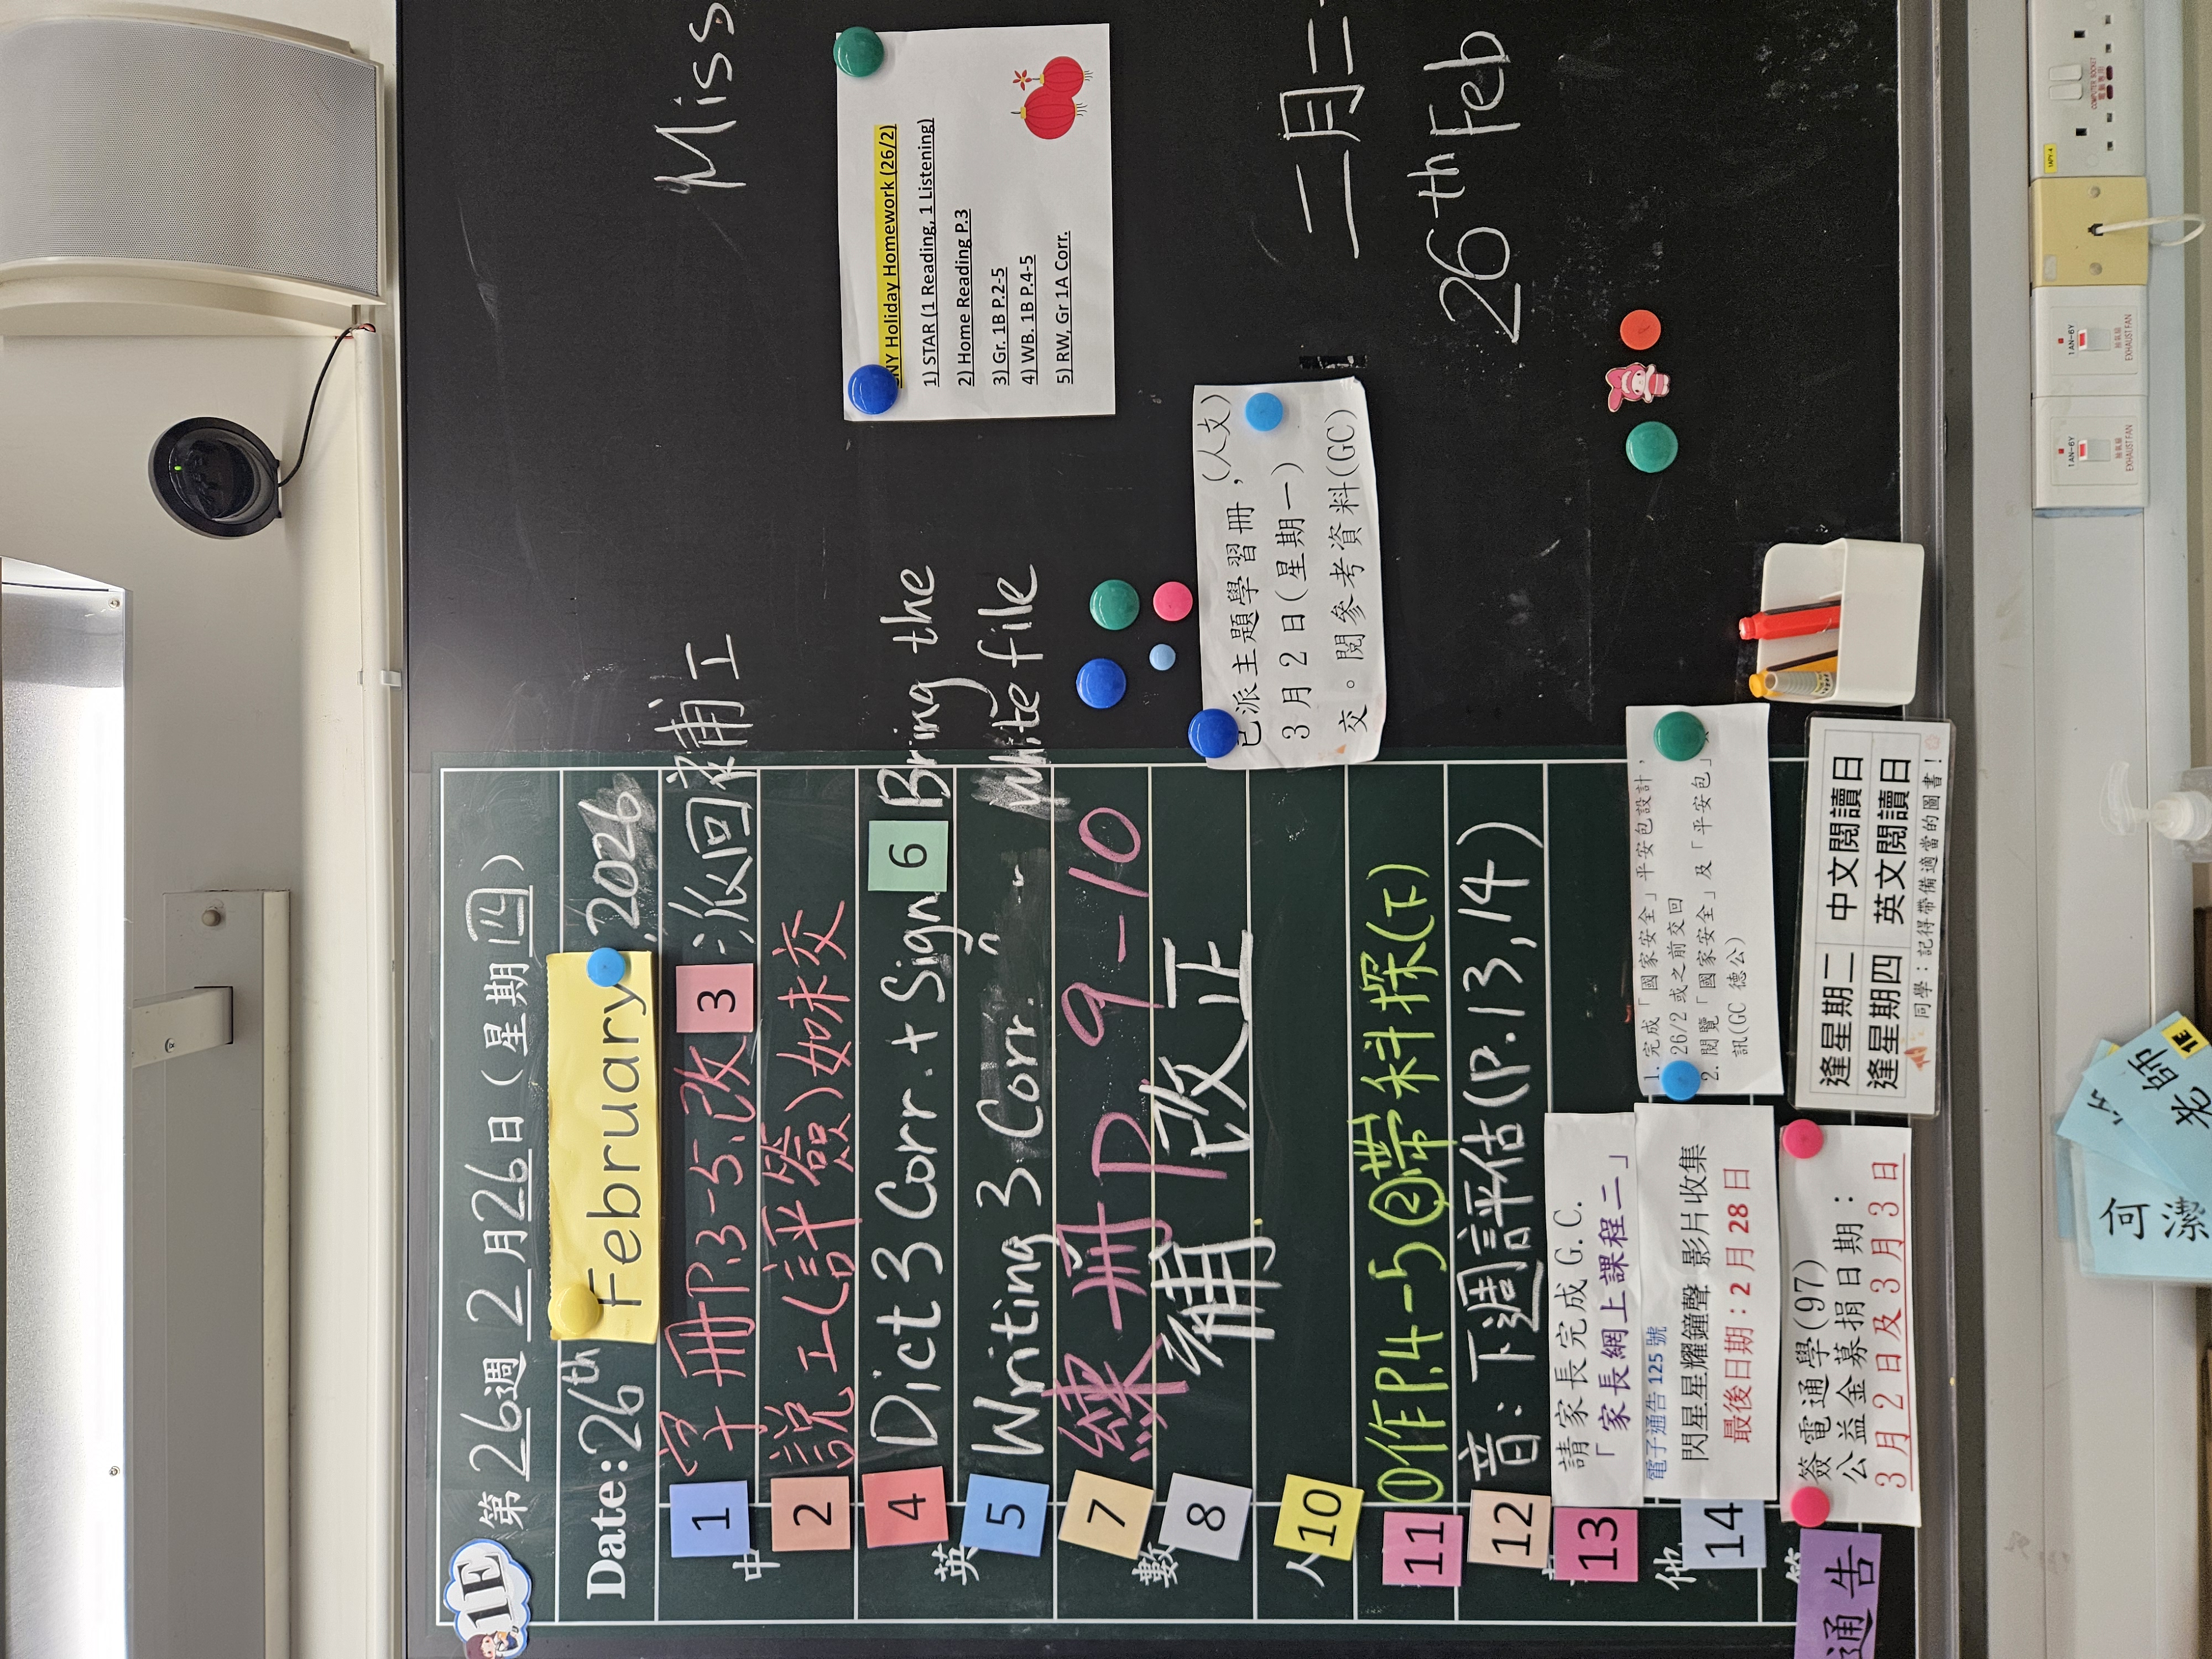 1E
第26週 2月26日(星期四)
Date: 26th February, 2026
中
1 字冊P.3-5.改 3 :派回家補工
2 說工(評簽)如未交
英
4 Dict 3 Corr. + Sign 6 Bring the
5 Writing 3 Corr. White file
數
7 練冊P 9-10
8 補 改正
人
10
11 ①作P.4-5 ②帶科探(下)
12 音:下週評估(P.13,14)
13 請家長完成 G.C.
「家長網上課程二」
他
14 電子通告 125 號
閃星星耀鐘聲 影片收集
最後日期:2 月 28 日
通告
簽電通學(97)
公益金募捐日期:
3月2日及3月3日
1. 完成「國家安全」平安包設計,
26/2 或之前交回
2. 閱覽「國家安全」及「平安包」
訊(GC 德公)
逢星期二 中文閱讀日
逢星期四 英文閱讀日
同學:記得帶備適當的圖書!
已派主題學習冊,(人文)
3月2日(星期一)
交。閱參考資料(GC)
Miss
NY Holiday Homework (26/2)
1) STAR (1 Reading, 1 Listening)
2) Home Reading P.3
3) Gr. 1B P.2-5
4) WB. 1B P.4-5
5) RW, Gr 1A Corr.
二月二
26th Feb
何潔
老師
1E
1AN-6Y
EXHAUST FAN
1AN-6Y
EXHAUST FAN
1APY-4
COMPUTER SOCKET